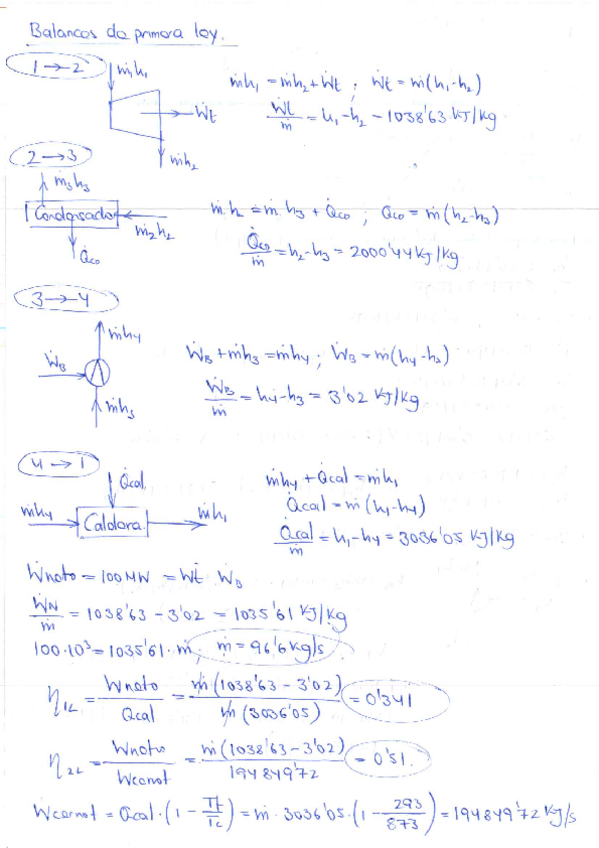 Balances de primera ley.
1 → 2
ṁh₁
ṁh₁ = ṁh₂ + Ẇt ; Ẇt = ṁ(h₁-h₂)
Ẇt
Ẇt/ṁ = h₁-h₂ - 1038'63 KJ/Kg
ṁh₂
2 → 3
ṁ₃h₃
Condensador
ṁ₂h₂
Q̇co
ṁ h₂ = ṁ h₃ + Q̇co ; Qco = ṁ(h₂-h₃)
Q̇co/ṁ = h₂-h₃ = 2000'44 KJ/Kg
3 → 4
ṁh₄
ẆB
ṁh₃
ẆB + ṁh₃ = ṁh₄ ; ẆB = ṁ(h₄-h₃)
ẆB/ṁ = h₄-h₃ = 3'02 KJ/Kg
4 → 1
Q̇cal
ṁh₄
Caldera
ṁh₁
ṁh₄ + Q̇cal = ṁh₁
Q̇cal = ṁ(h₁-h₄)
Q̇cal/ṁ = h₁-h₄ = 3036'05 KJ/Kg
Ẇneto = 100 MW = Ẇt ẆB
ẆN/ṁ = 1038'63 - 3'02 = 1035'61 KJ/Kg
100·10³ = 1035'61·ṁ; ṁ = 96'6 kg/s
η1L = Ẇneto/Qcal = ṁ(1038'63 - 3'02)/ṁ(3036'05) = 0'341
η2L = Ẇneto/Wcarnot = ṁ(1038'63 - 3'02)/194849'72 = 0'51.
Ẇcarnot = Q̇cal·(1 - Tf/Tc) = ṁ·3036'05·(1 - 293/873) = 194849'72 KJ/s